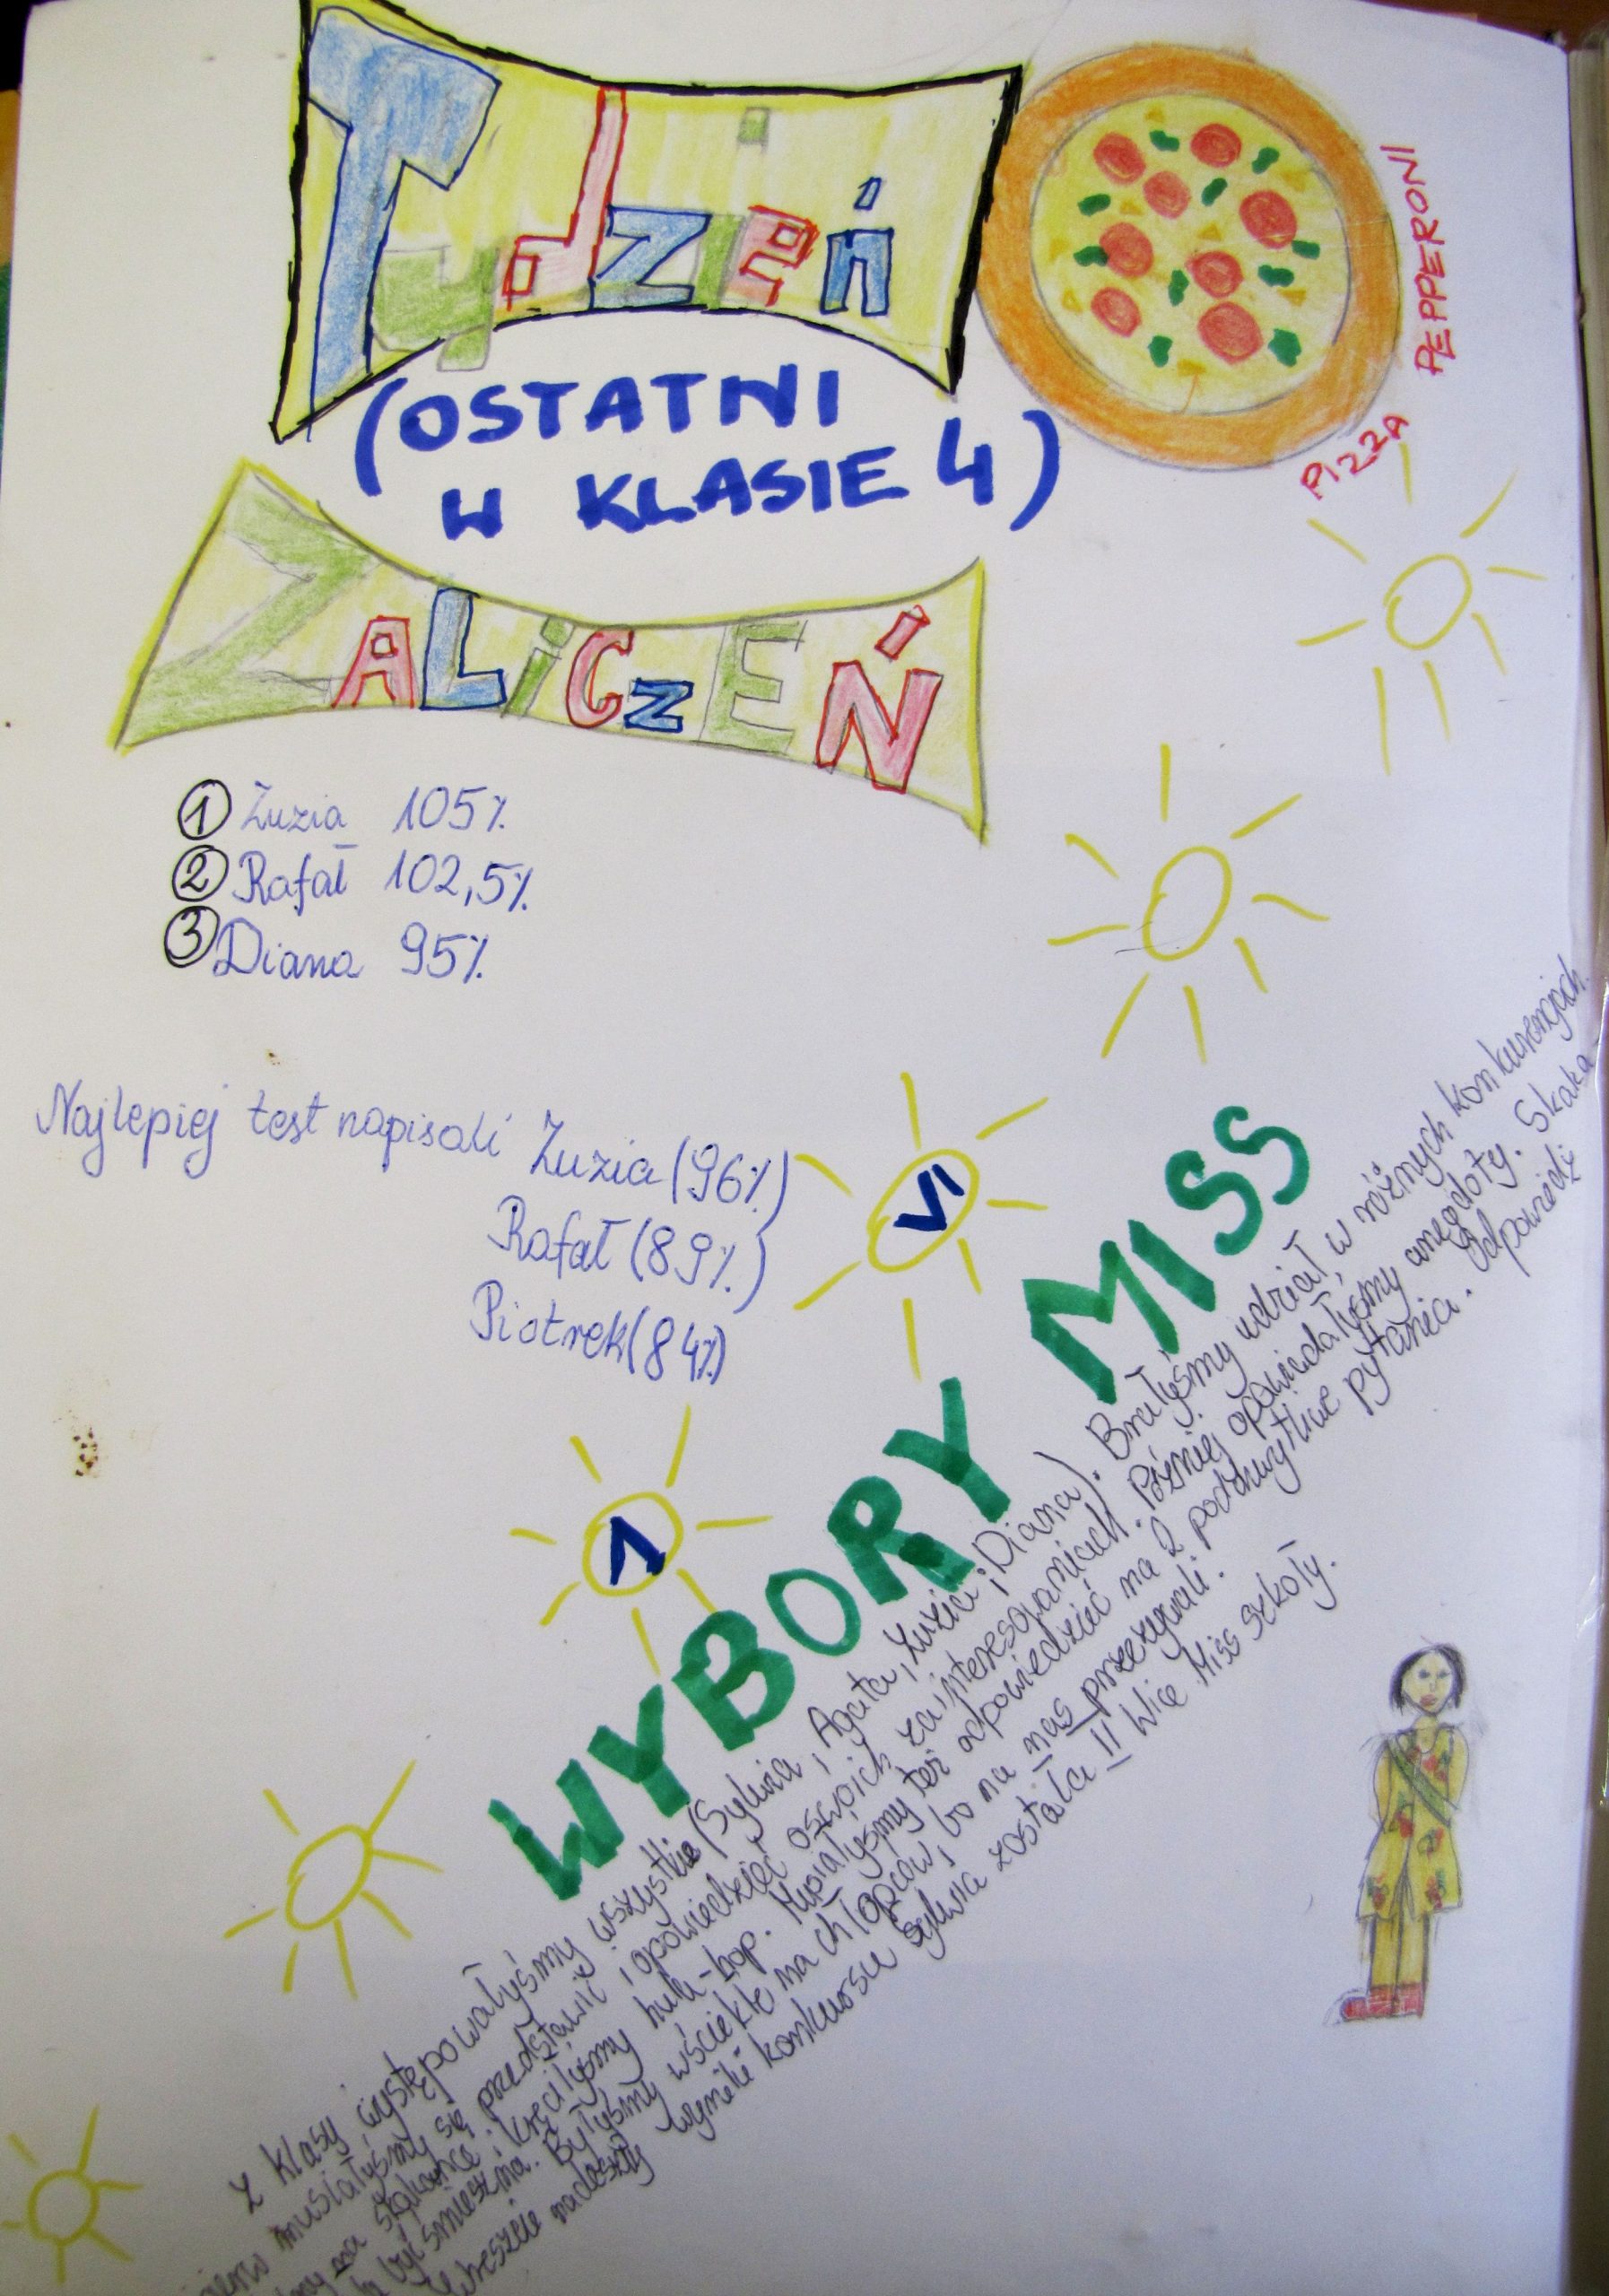 Tydzień
(OSTATNI
W KLASIE 4)
ZALiCzEŃ
PIZZA PEPPERONI
1 Zuzia 105%
2 Rafał 102,5%
3 Diana 95%
Najlepiej test napisali Zuzia (96%)
Rafał (89%)
Piotrek (84%)
1 VI
WYBORY MISS
Z klasy występowałyśmy wszystkie (Sylwia, Agata, Zuzia i Diana). Brałyśmy udział w różnych konkurencjach.
musiałyśmy się przedstawić i opowiedzieć o swoich zainteresowaniach. Później opowiadałyśmy anegdoty. Skaka-
na skakance i kręciłyśmy hula-hop. Musiałyśmy też odpowiedzieć na 2 podchwytliwe pytania. Odpowiedź
być śmieszna. Byłyśmy wściekłe na chłopców, bo na nas przezywali.
Wreszcie nadeszły wyniki konkursu Sylwia została II Wice Miss szkoły.